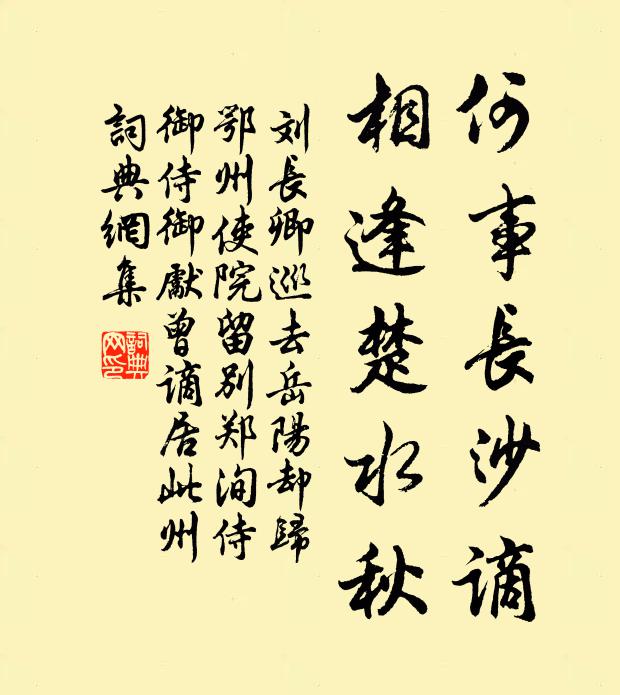 何事長沙謫
相逢楚水秋
刘長卿巡去岳陽却歸
鄂州使院留别郑洵侍
御侍御獻曾謫居此州
詞典網集
詞典
网印